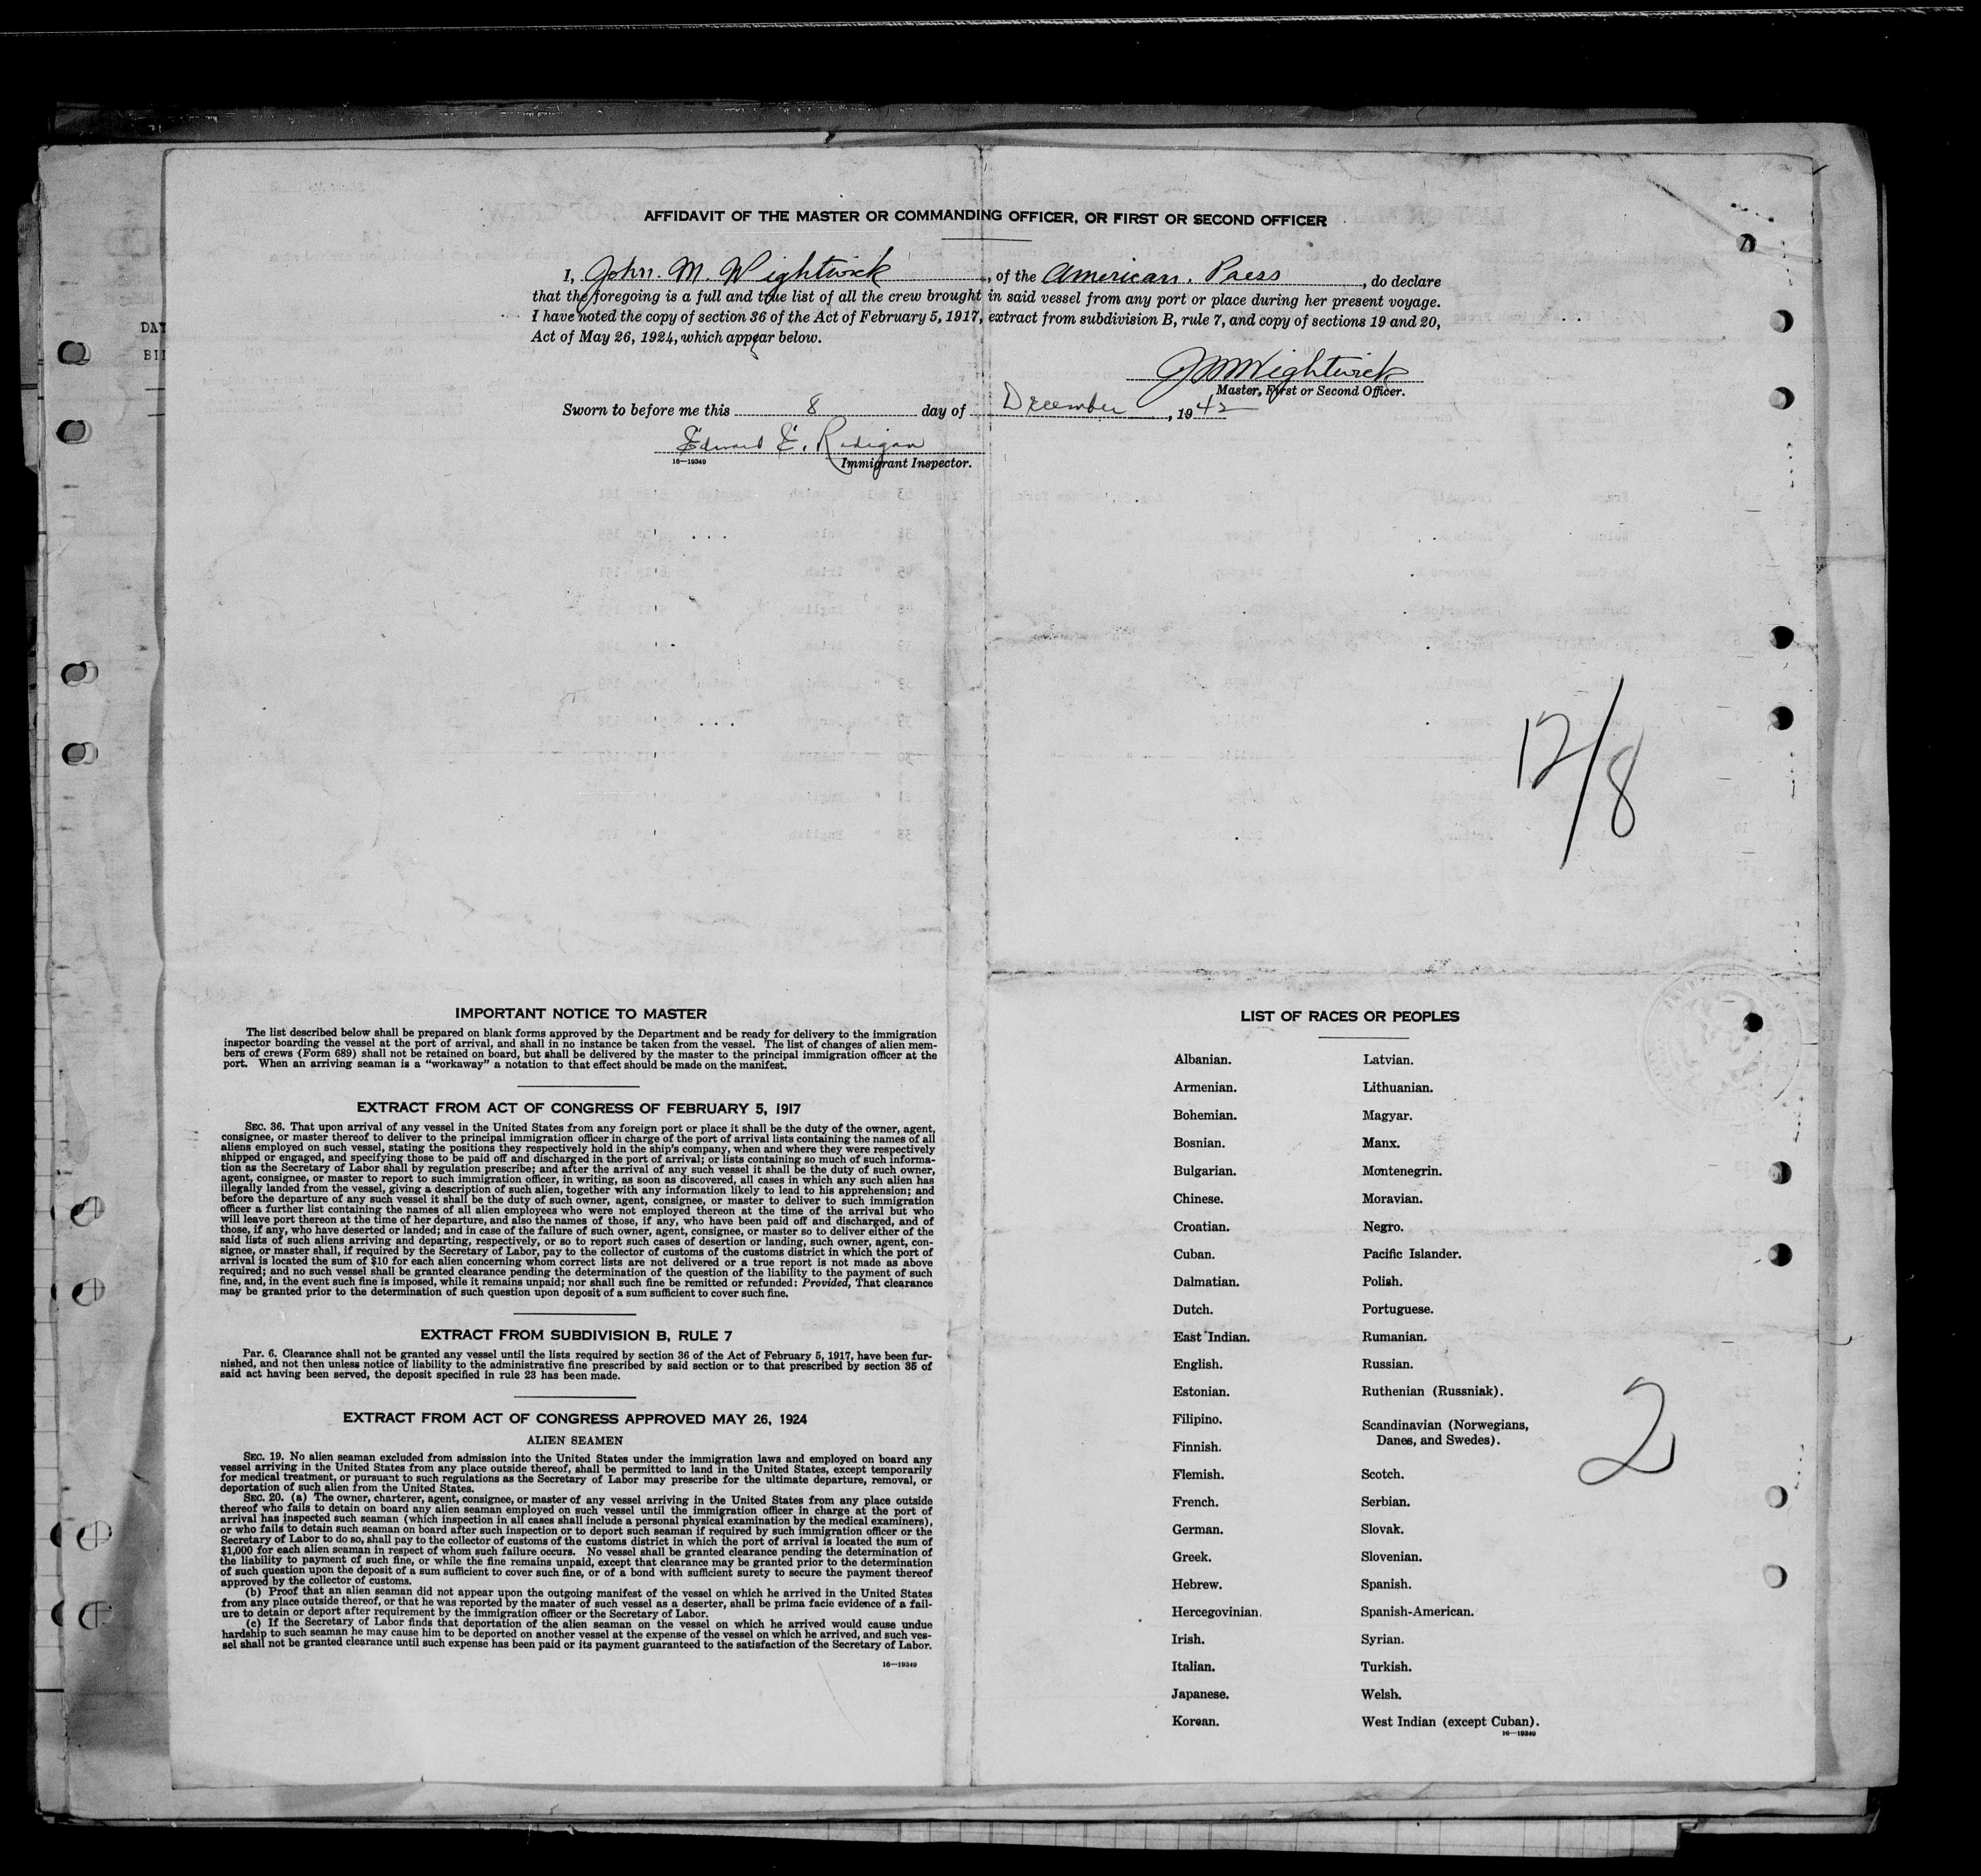 AFFIDAVIT OF THE MASTER OR COMMANDING OFFICER, OR FIRST OR SECOND OFFICER
I, John. M. Wightwick, of the American. Press, do declare
that the foregoing is a full and true list of all the crew brought in said vessel from any port or place during her present voyage.
I have noted the copy of section 36 of the Act of February 5, 1917, extract from subdivision B, rule 7, and copy of sections 19 and 20,
Act of May 26, 1924, which appear below.
JMWightwick
Master, First or Second Officer.
Sworn to before me this 8 day of December, 1942
Edward E. Radigan
16—19349
Immigrant Inspector.
DAT
BI
12/8
IMPORTANT NOTICE TO MASTER
The list described below shall be prepared on blank forms approved by the Department and be ready for delivery to the immigration
inspector boarding the vessel at the port of arrival, and shall in no instance be taken from the vessel. The list of changes of alien mem-
bers of crews (Form 689) shall not be retained on board, but shall be delivered by the master to the principal immigration officer at the
port. When an arriving seaman is a "workaway" a notation to that effect should be made on the manifest.
EXTRACT FROM ACT OF CONGRESS OF FEBRUARY 5, 1917
SEC. 36. That upon arrival of any vessel in the United States from any foreign port or place it shall be the duty of the owner, agent,
consignee, or master thereof to deliver to the principal immigration officer in charge of the port of arrival lists containing the names of all
aliens employed on such vessel, stating the positions they respectively hold in the ship's company, when and where they were respectively
shipped or engaged, and specifying those to be paid off and discharged in the port of arrival; or lists containing so much of such informa-
tion as the Secretary of Labor shall by regulation prescribe; and after the arrival of any such vessel it shall be the duty of such owner,
agent, consignee, or master to report to such immigration officer, in writing, as soon as discovered, all cases in which any such alien has
illegally landed from the vessel, giving a description of such alien, together with any information likely to lead to his apprehension; and
before the departure of any such vessel it shall be the duty of such owner, agent, consignee, or master to deliver to such immigration
officer a further list containing the names of all alien employees who were not employed thereon at the time of the arrival but who
will leave port thereon at the time of her departure, and also the names of those, if any, who have been paid off and discharged, and of
those, if any, who have deserted or landed; and in case of the failure of such owner, agent, consignee, or master so to deliver either of the
said lists of such aliens arriving and departing, respectively, or so to report such cases of desertion or landing, such owner, agent, con-
signee, or master shall, if required by the Secretary of Labor, pay to the collector of customs of the customs district in which the port of
arrival is located the sum of $10 for each alien concerning whom correct lists are not delivered or a true report is not made as above
required; and no such vessel shall be granted clearance pending the determination of the question of the liability to the payment of such
fine, and, in the event such fine is imposed, while it remains unpaid; nor shall such fine be remitted or refunded: Provided, That clearance
may be granted prior to the determination of such question upon deposit of a sum sufficient to cover such fine.
EXTRACT FROM SUBDIVISION B, RULE 7
Par. 6. Clearance shall not be granted any vessel until the lists required by section 36 of the Act of February 5, 1917, have been fur-
nished, and not then unless notice of liability to the administrative fine prescribed by said section or to that prescribed by section 35 of
said act having been served, the deposit specified in rule 23 has been made.
EXTRACT FROM ACT OF CONGRESS APPROVED MAY 26, 1924
ALIEN SEAMEN
SEC. 19. No alien seaman excluded from admission into the United States under the immigration laws and employed on board any
vessel arriving in the United States from any place outside thereof, shall be permitted to land in the United States, except temporarily
for medical treatment, or pursuant to such regulations as the Secretary of Labor may prescribe for the ultimate departure, removal, or
deportation of such alien from the United States.
SEC. 20. (a) The owner, charterer, agent, consignee, or master of any vessel arriving in the United States from any place outside
thereof who fails to detain on board any alien seaman employed on such vessel until the immigration officer in charge at the port of
arrival has inspected such seaman (which inspection in all cases shall include a personal physical examination by the medical examiners),
or who fails to detain such seaman on board after such inspection or to deport such seaman if required by such immigration officer or the
Secretary of Labor to do so, shall pay to the collector of customs of the customs district in which the port of arrival is located the sum of
$1,000 for each alien seaman in respect of whom such failure occurs. No vessel shall be granted clearance pending the determination of
the liability to payment of such fine, or while the fine remains unpaid, except that clearance may be granted prior to the determination
of such question upon the deposit of a sum sufficient to cover such fine, or of a bond with sufficient surety to secure the payment thereof
approved by the collector of customs.
(b) Proof that an alien seaman did not appear upon the outgoing manifest of the vessel on which he arrived in the United States
from any place outside thereof, or that he was reported by the master of such vessel as a deserter, shall be prima facie evidence of a fail-
ure to detain or deport after requirement by the immigration officer or the Secretary of Labor.
(c) If the Secretary of Labor finds that deportation of the alien seaman on the vessel on which he arrived would cause undue
hardship to such seaman he may cause him to be deported on another vessel at the expense of the vessel on which he arrived, and such ves-
sel shall not be granted clearance until such expense has been paid or its payment guaranteed to the satisfaction of the Secretary of Labor.
16—19349
LIST OF RACES OR PEOPLES
Albanian.
Armenian.
Bohemian.
Bosnian.
Bulgarian.
Chinese.
Croatian.
Cuban.
Dalmatian.
Dutch.
East Indian.
English.
Estonian.
Filipino.
Finnish.
Flemish.
French.
German.
Greek.
Hebrew.
Hercegovinian.
Irish.
Italian.
Japanese.
Korean.
Latvian.
Lithuanian.
Magyar.
Manx.
Montenegrin.
Moravian.
Negro.
Pacific Islander.
Polish.
Portuguese.
Rumanian.
Russian.
Ruthenian (Russniak).
Scandinavian (Norwegians,
Danes, and Swedes).
Scotch.
Serbian.
Slovak.
Slovenian.
Spanish.
Spanish-American.
Syrian.
Turkish.
Welsh.
West Indian (except Cuban).
16—19349
2